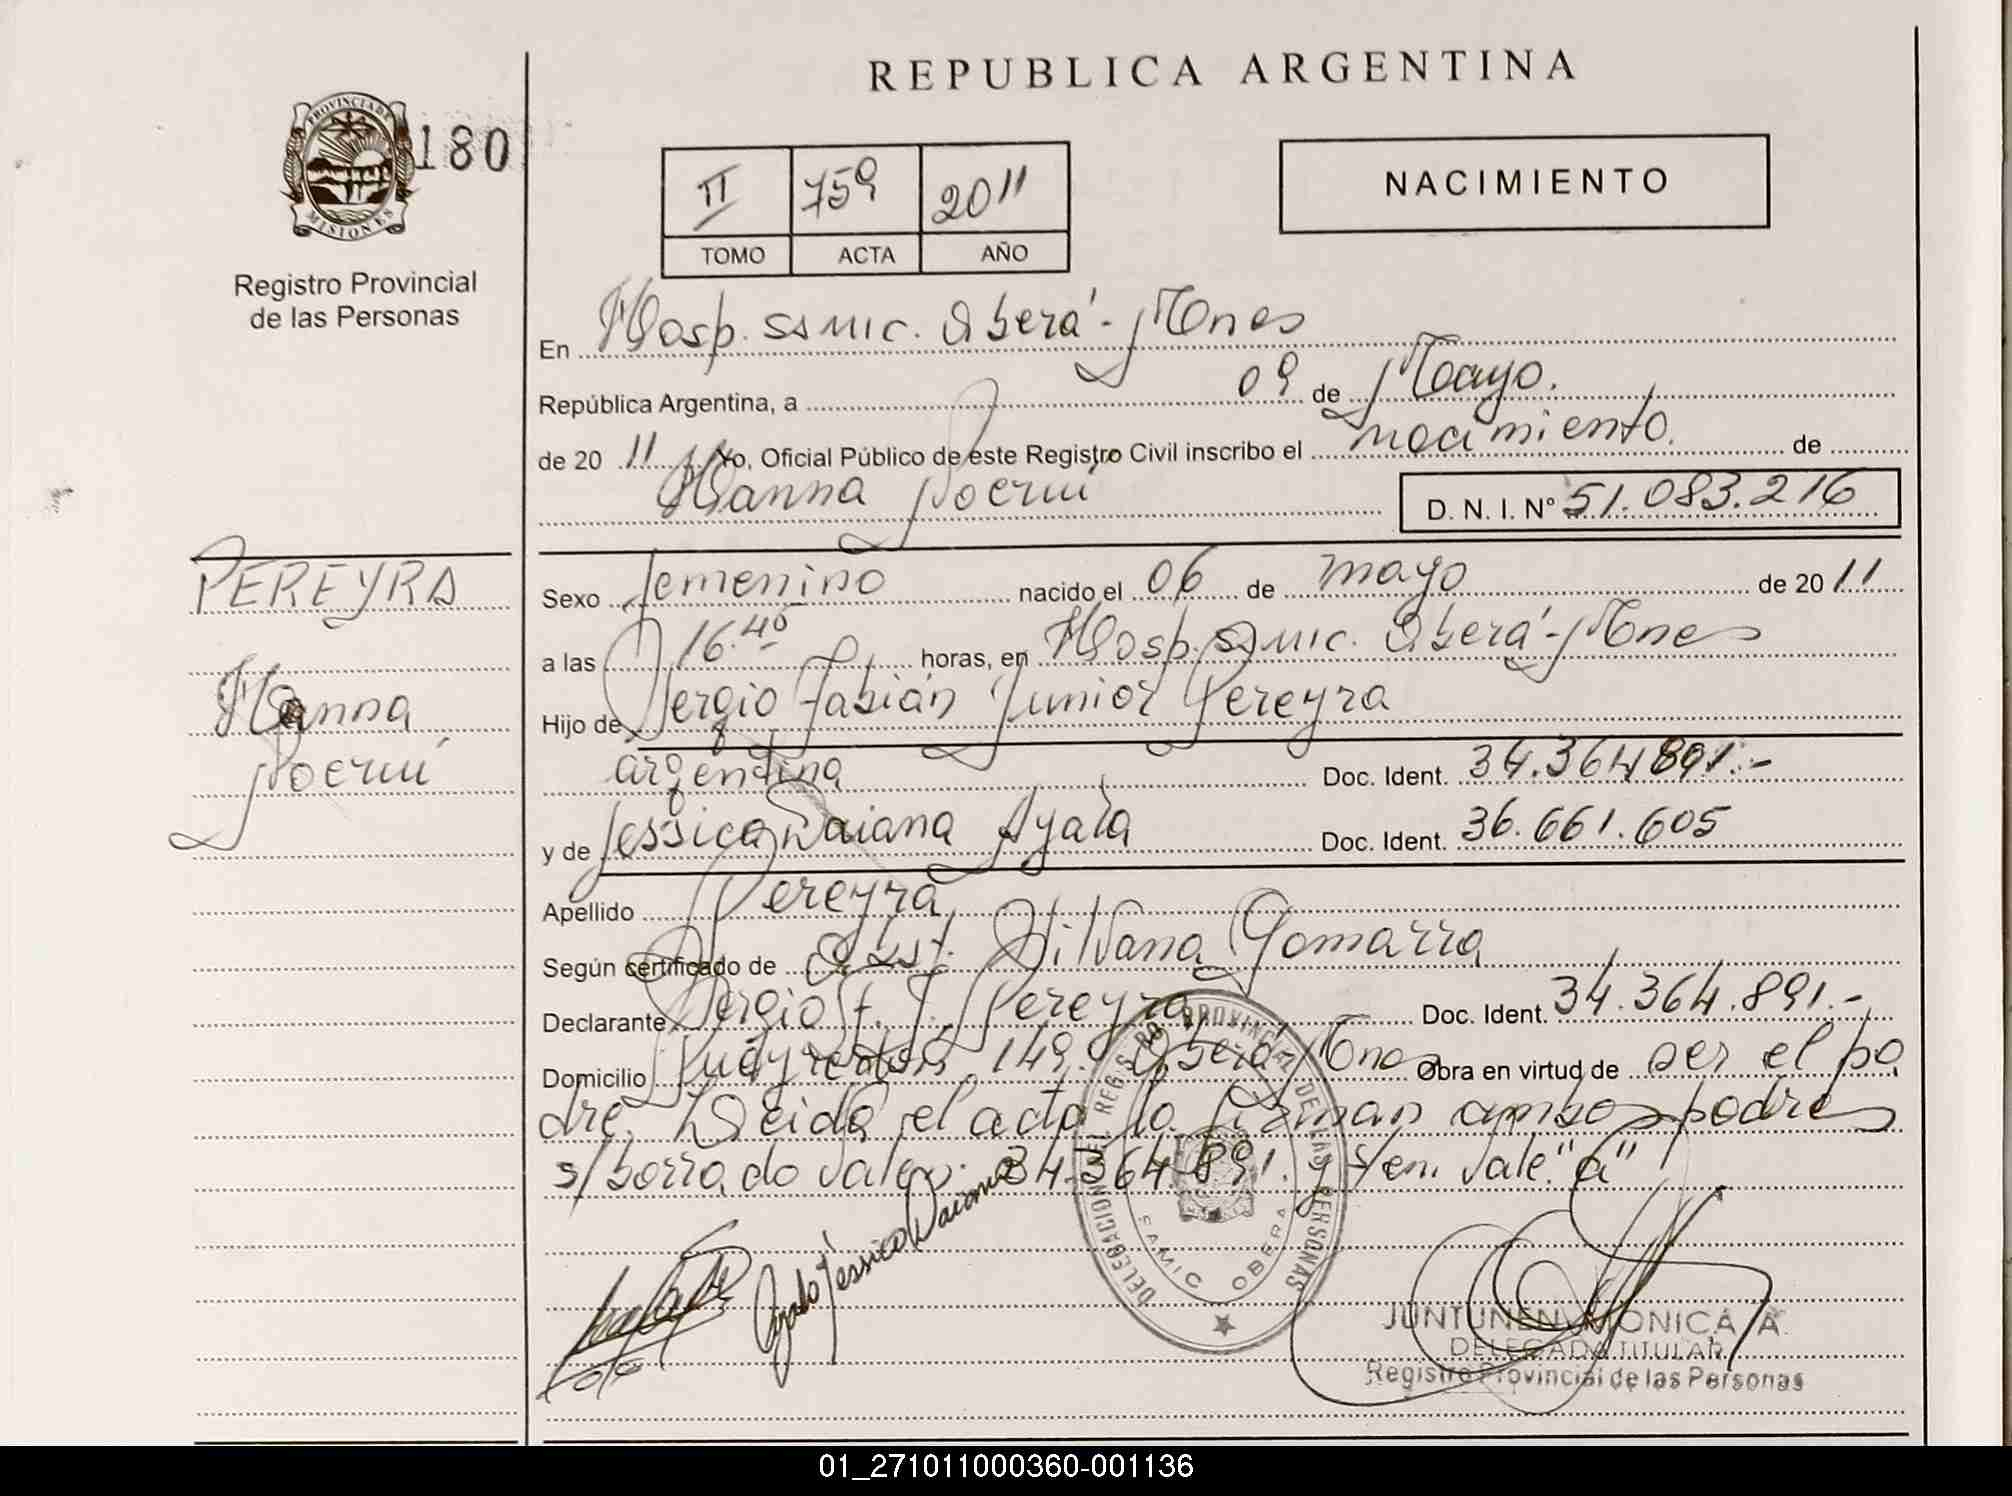 REPUBLICA ARGENTINA
PROVINCIA DE
MISIONES
180
Registro Provincial
de las Personas
II 759 2011
TOMO ACTA AÑO
NACIMIENTO
En Hosp. SAMIC. Oberá - Mnes
República Argentina, a 09 de Mayo.
de 20 11 Yo, Oficial Público de este Registro Civil inscribo el nacimiento. de
Hanna Noemí
D. N. I. Nº 51.083.216
PEREYRA
Hanna
Noemí
Sexo femenino nacido el 06 de mayo de 20 11
a las 16.40 horas, en Hosp. SAMIC. Oberá - Mnes
Hijo de Sergio Fabián Junior Pereyra
argentina Doc. Ident. 34.364.891.-
y de Jessica Daiana Ayala Doc. Ident. 36.661.605
Apellido Pereyra
Según certificado de Obst. Silvana Gomarra
Declarante Sergio F. J. Pereyra Doc. Ident. 34.364.891.-
Domicilio Pueyrredon 149. Oberá Mnes Obra en virtud de ser el pa
dre. Leida el acta la firman ambos padres
s/borrado valen: 34.364.891. y /en. vale "a"
Ayala Jessica Daiana
DELEGACION DEL REGISTRO PROVINCIAL DE LAS PERSONAS
SAMIC OBERA
JUNTUNEN MONICA A.
DELEGADA TITULAR
Registro Provincial de las Personas
01_271011000360-001136